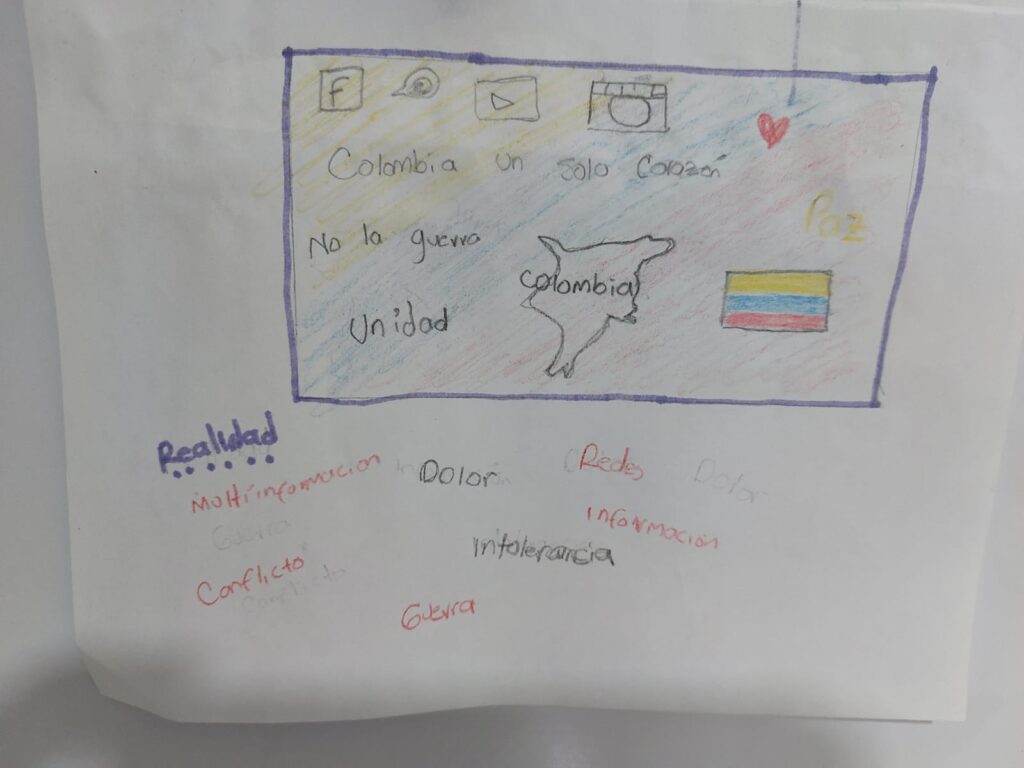 F
Colombia un solo Corazón
Paz
No la guerra
Colombia
Unidad
Realidad
Multiinformacion
Dolor
Redes
Dolor
Guerra
Información
Intolerancia
Conflicto
Conflicto
Guerra